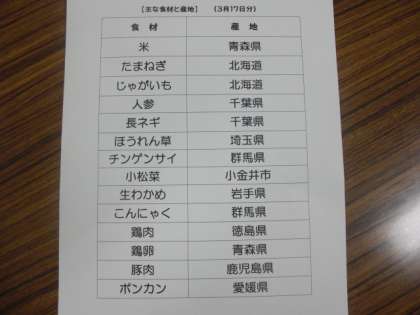 【主な食材と産地】 (3月17日分)
食 材 産 地
米 青森県
たまねぎ 北海道
じゃがいも 北海道
人参 千葉県
長ネギ 千葉県
ほうれん草 埼玉県
チンゲンサイ 群馬県
小松菜 小金井市
生わかめ 岩手県
こんにゃく 群馬県
鶏肉 徳島県
鶏卵 青森県
豚肉 鹿児島県
ポンカン 愛媛県